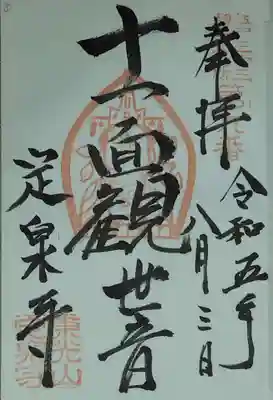 奉拝
令和五年
八月三日
十一面観世音
定泉寺
東光山